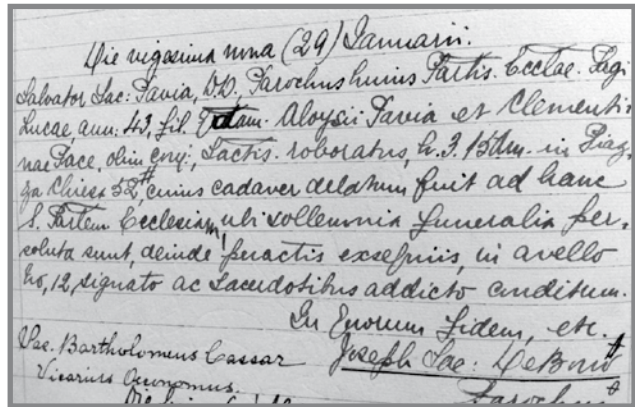 Die vigesima nona (29) Januarii.
Salvator Sac: Pavia, D.D. Parochus huius Partis. Ecclae. Pagi
Lucae, ann: 43, fil. Qdam. Aloysii Pavia et Clementi
nae Pace, olim conj:, Sactis. roboratus, h. 3. 15Am. in Piaz,
za Chiesa 52, cuius cadaver delatum fuit ad hanc
S. Partem Ecclesiam, ubi sollemnia funeralia per,
soluta sunt, deinde peractis exsequiis, in avello
No, 12, signato ac Sacerdotibus addicto conditum.
In Quorum Fidem, etc.
Sac. Bartholomeus Cassar
Joseph Sac: DeBono
Vicarius Oeconomus.
Parochus